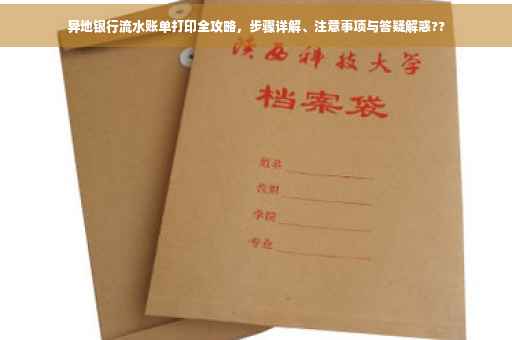 异地银行流水账单打印全攻略，步骤详解、注意事项与答疑解惑??
陕西科技大学
档案袋
姓名
性别
学院
专业